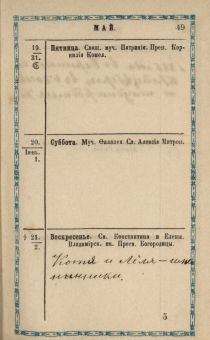 МАЙ. 49
19.
31.
Пятница. Свящ. муч. Патрикія. Преп. Кор-
нилія Комел.
20.
Іюнь.
1.
Суббота. Муч. Фалалея. Св. Алексія Митроп.
21.
2.
Воскресенье. Св. Константина и Елены.
Владимірск. ик. Пресв. Богородицы.
Котя и Лёля
5